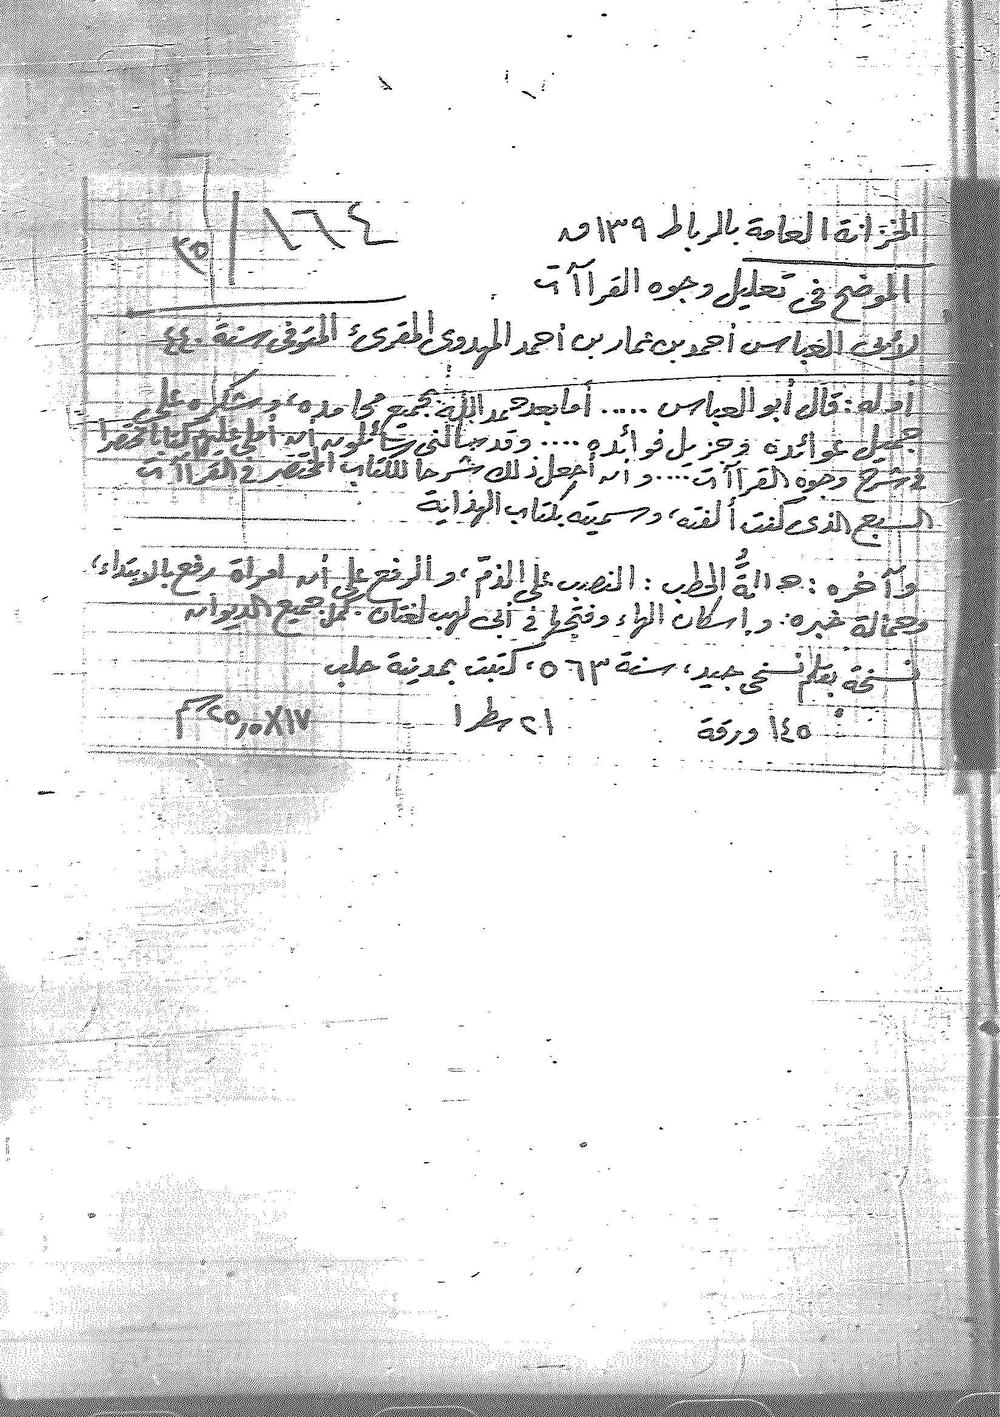 الخزانة العامة بالرباط ١٣٩ ق
١٦٤ /
الموضح فى تعليل وجوه القراآت
لأبى العباس أحمد بن عمار بن أحمد المهدوى المقرئ المتوفى سنة ٤٤٠
أوله : قال أبو العباس ..... أما بعد حمد الله بجميع محامده، وشكره على
جميل عوائده وجزيل فوائده .... وقد سألنى سائلون أن أملى عليهم كتابا مختصرا
فى شرح وجوه القراآت .... وأن أجعل ذلك شرحا للكتاب المختصر فى القراآت
السبع الذى كنت ألفته، وسميته بكتاب الهداية
وآخره : حمالةُ الحطب : النصب على الذمّ، والرفع على أن امرأة رفع بالابتداء،
وحمالة خبره. وإسكان الهاء وفتحها فى أبى لهب لغتان. كمل جميع الديوان
نسخة بقلم نسخى جيد، سنة ٥٦٣، كتبت بمدينة حلب
١٤٥ ورقة ٢١ سطرا ١٧×٢٥,٥ سم